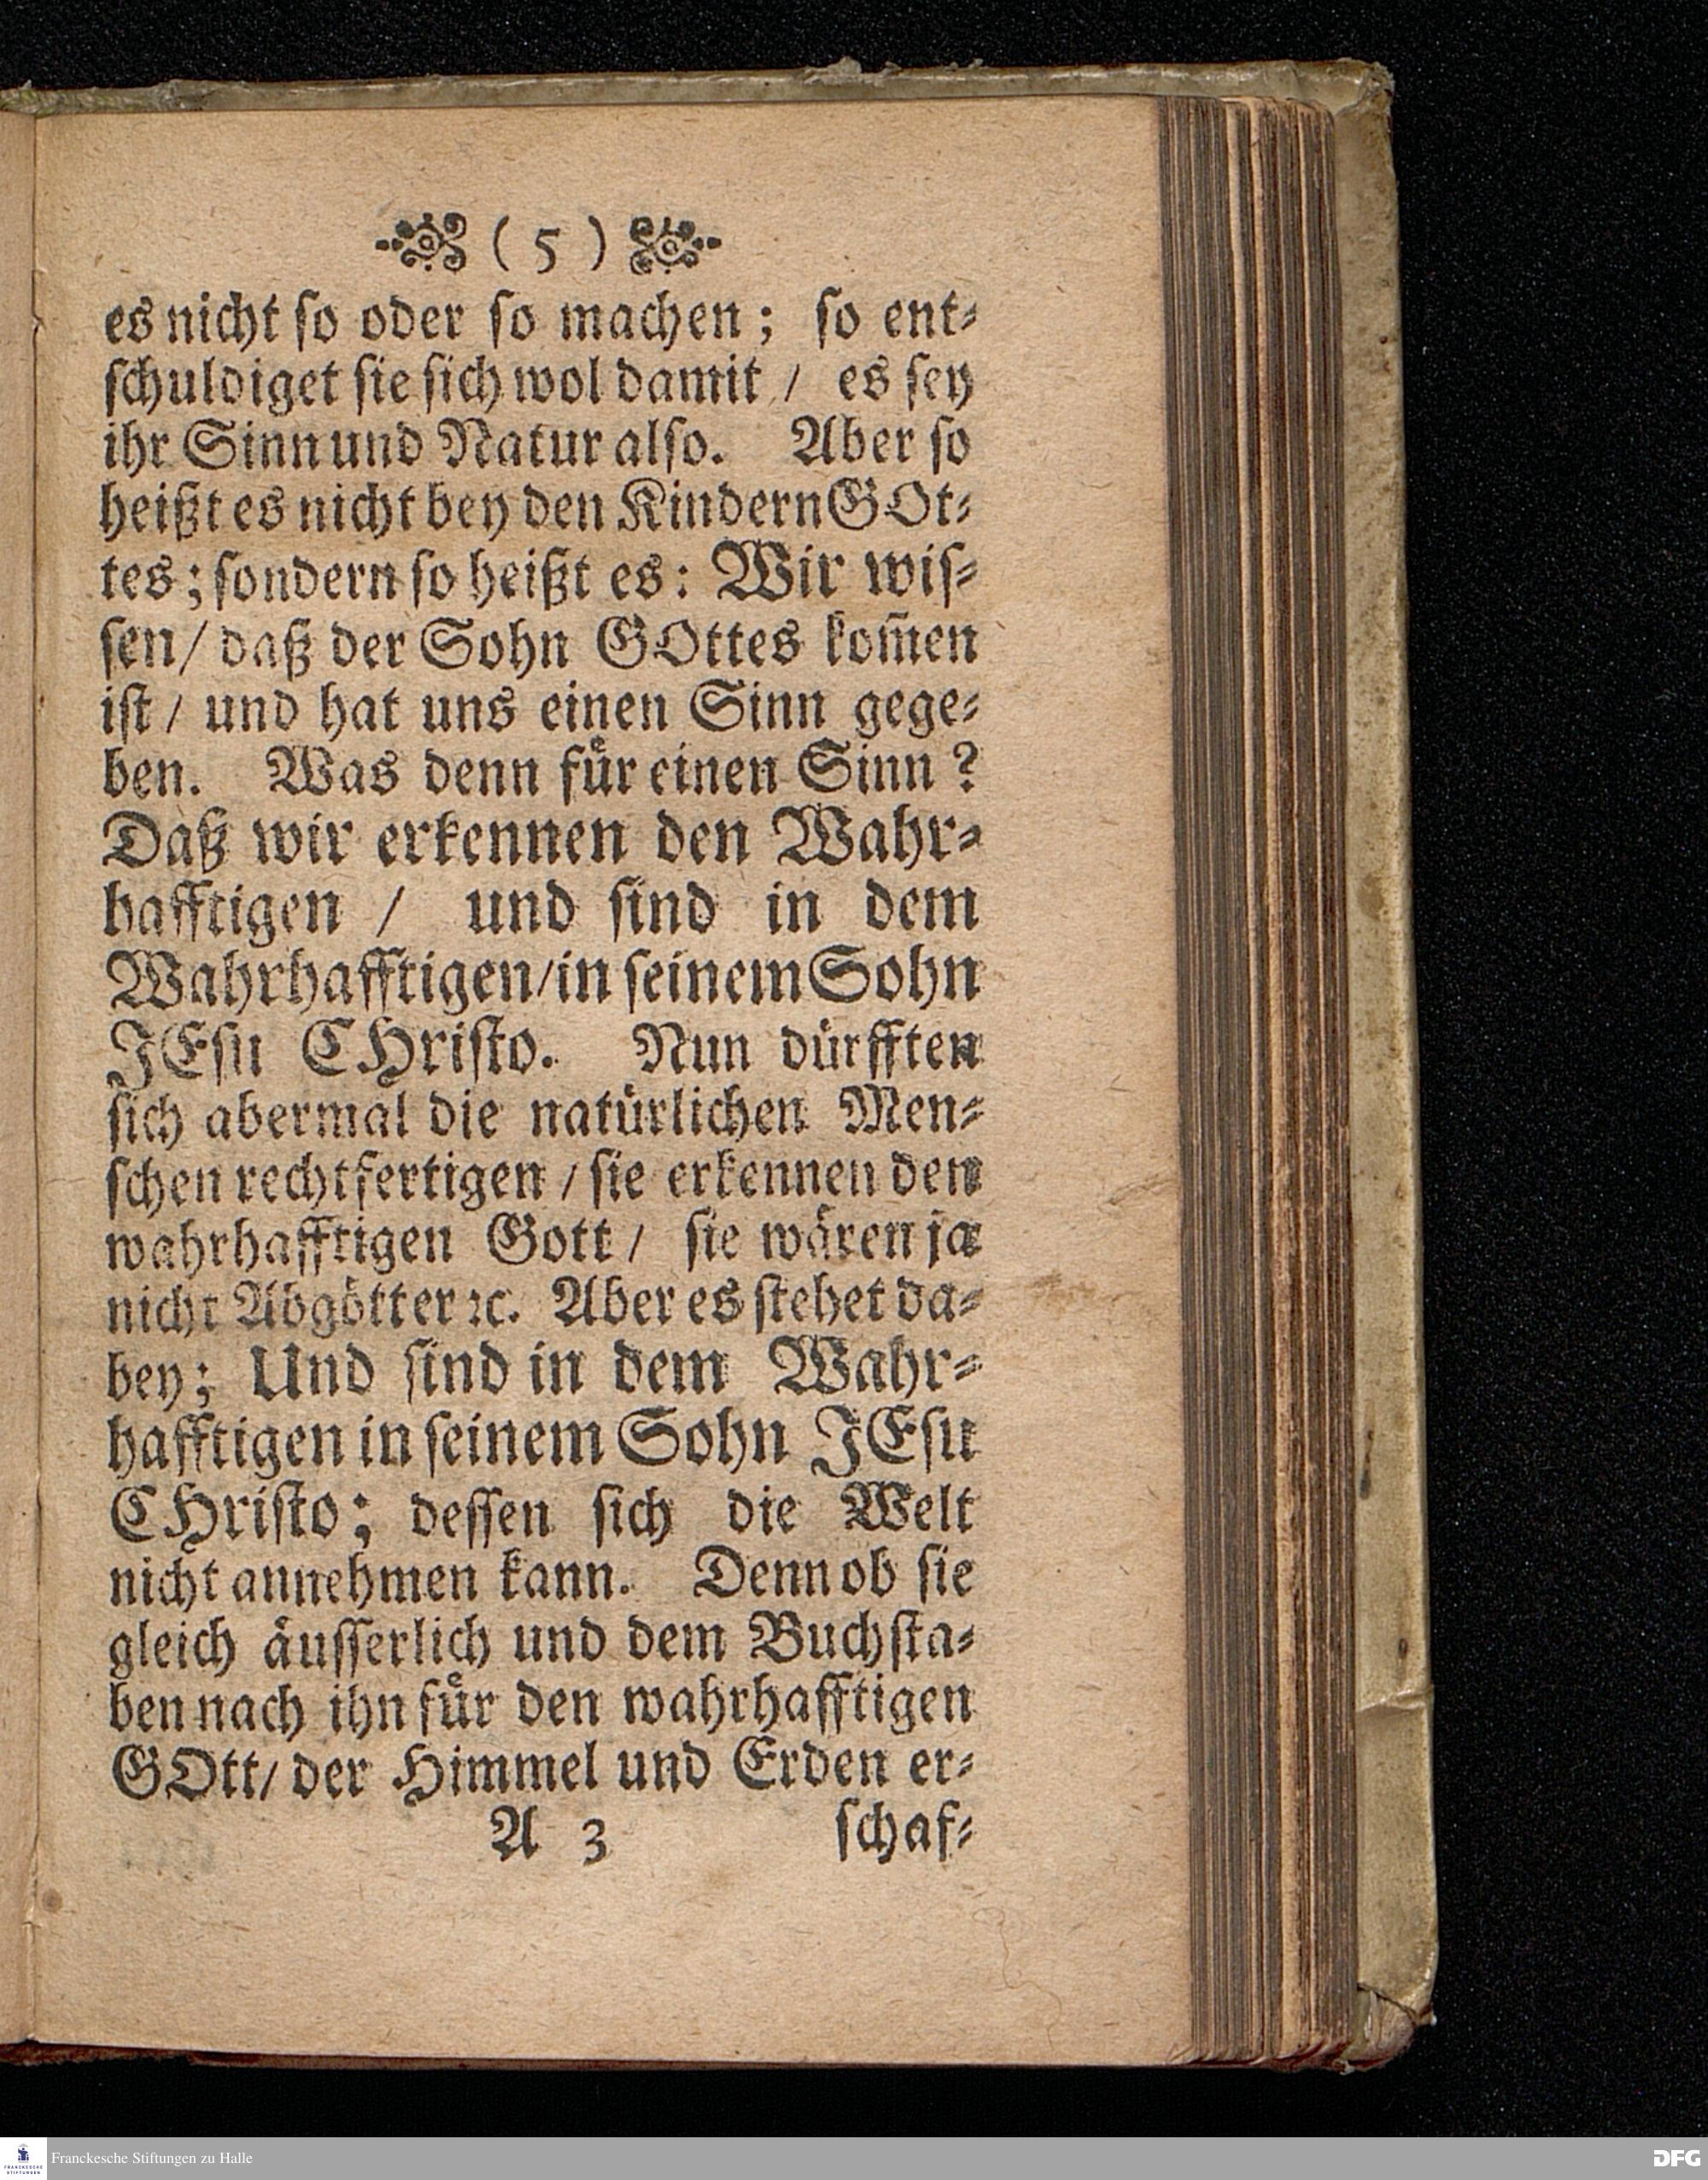 ( 5 )
es nicht ſo oder ſo machen; ſo ent⸗
ſchuldiget ſie ſich wol damit / es ſey
ihr Sinn und Natur alſo. Aber ſo
heißt es nicht bey den Kindern GOt⸗
tes; ſondern ſo heißt es: Wir wiſ⸗
ſen/ daß der Sohn GOttes kom̃en
iſt / und hat uns einen Sinn gege⸗
ben. Was denn fuͤr einen Sinn?
Daß wir erkennen den Wahr⸗
hafftigen / und ſind in dem
Wahrhafftigen/in ſeinem Sohn
JEſu CHriſto. Nun dürfften
ſich abermal die natürlichen Men⸗
ſchen rechtfertigen / ſie erkennen den
wahrhafftigen Gott / ſie wären ja
nicht Abgötter ꝛc. Aber es ſtehet da⸗
bey; Und ſind in dem Wahr⸗
hafftigen in ſeinem Sohn JEſu
CHriſto; deſſen ſich die Welt
nicht annehmen kann. Denn ob ſie
gleich äuſſerlich und dem Buchſta⸗
ben nach ihn fuͤr den wahrhafftigen
GOtt/ der Himmel und Erden er⸗
A 3 ſchaf⸗
FRANCKESCHE STIFTUNGEN
Franckesche Stiftungen zu Halle
DFG